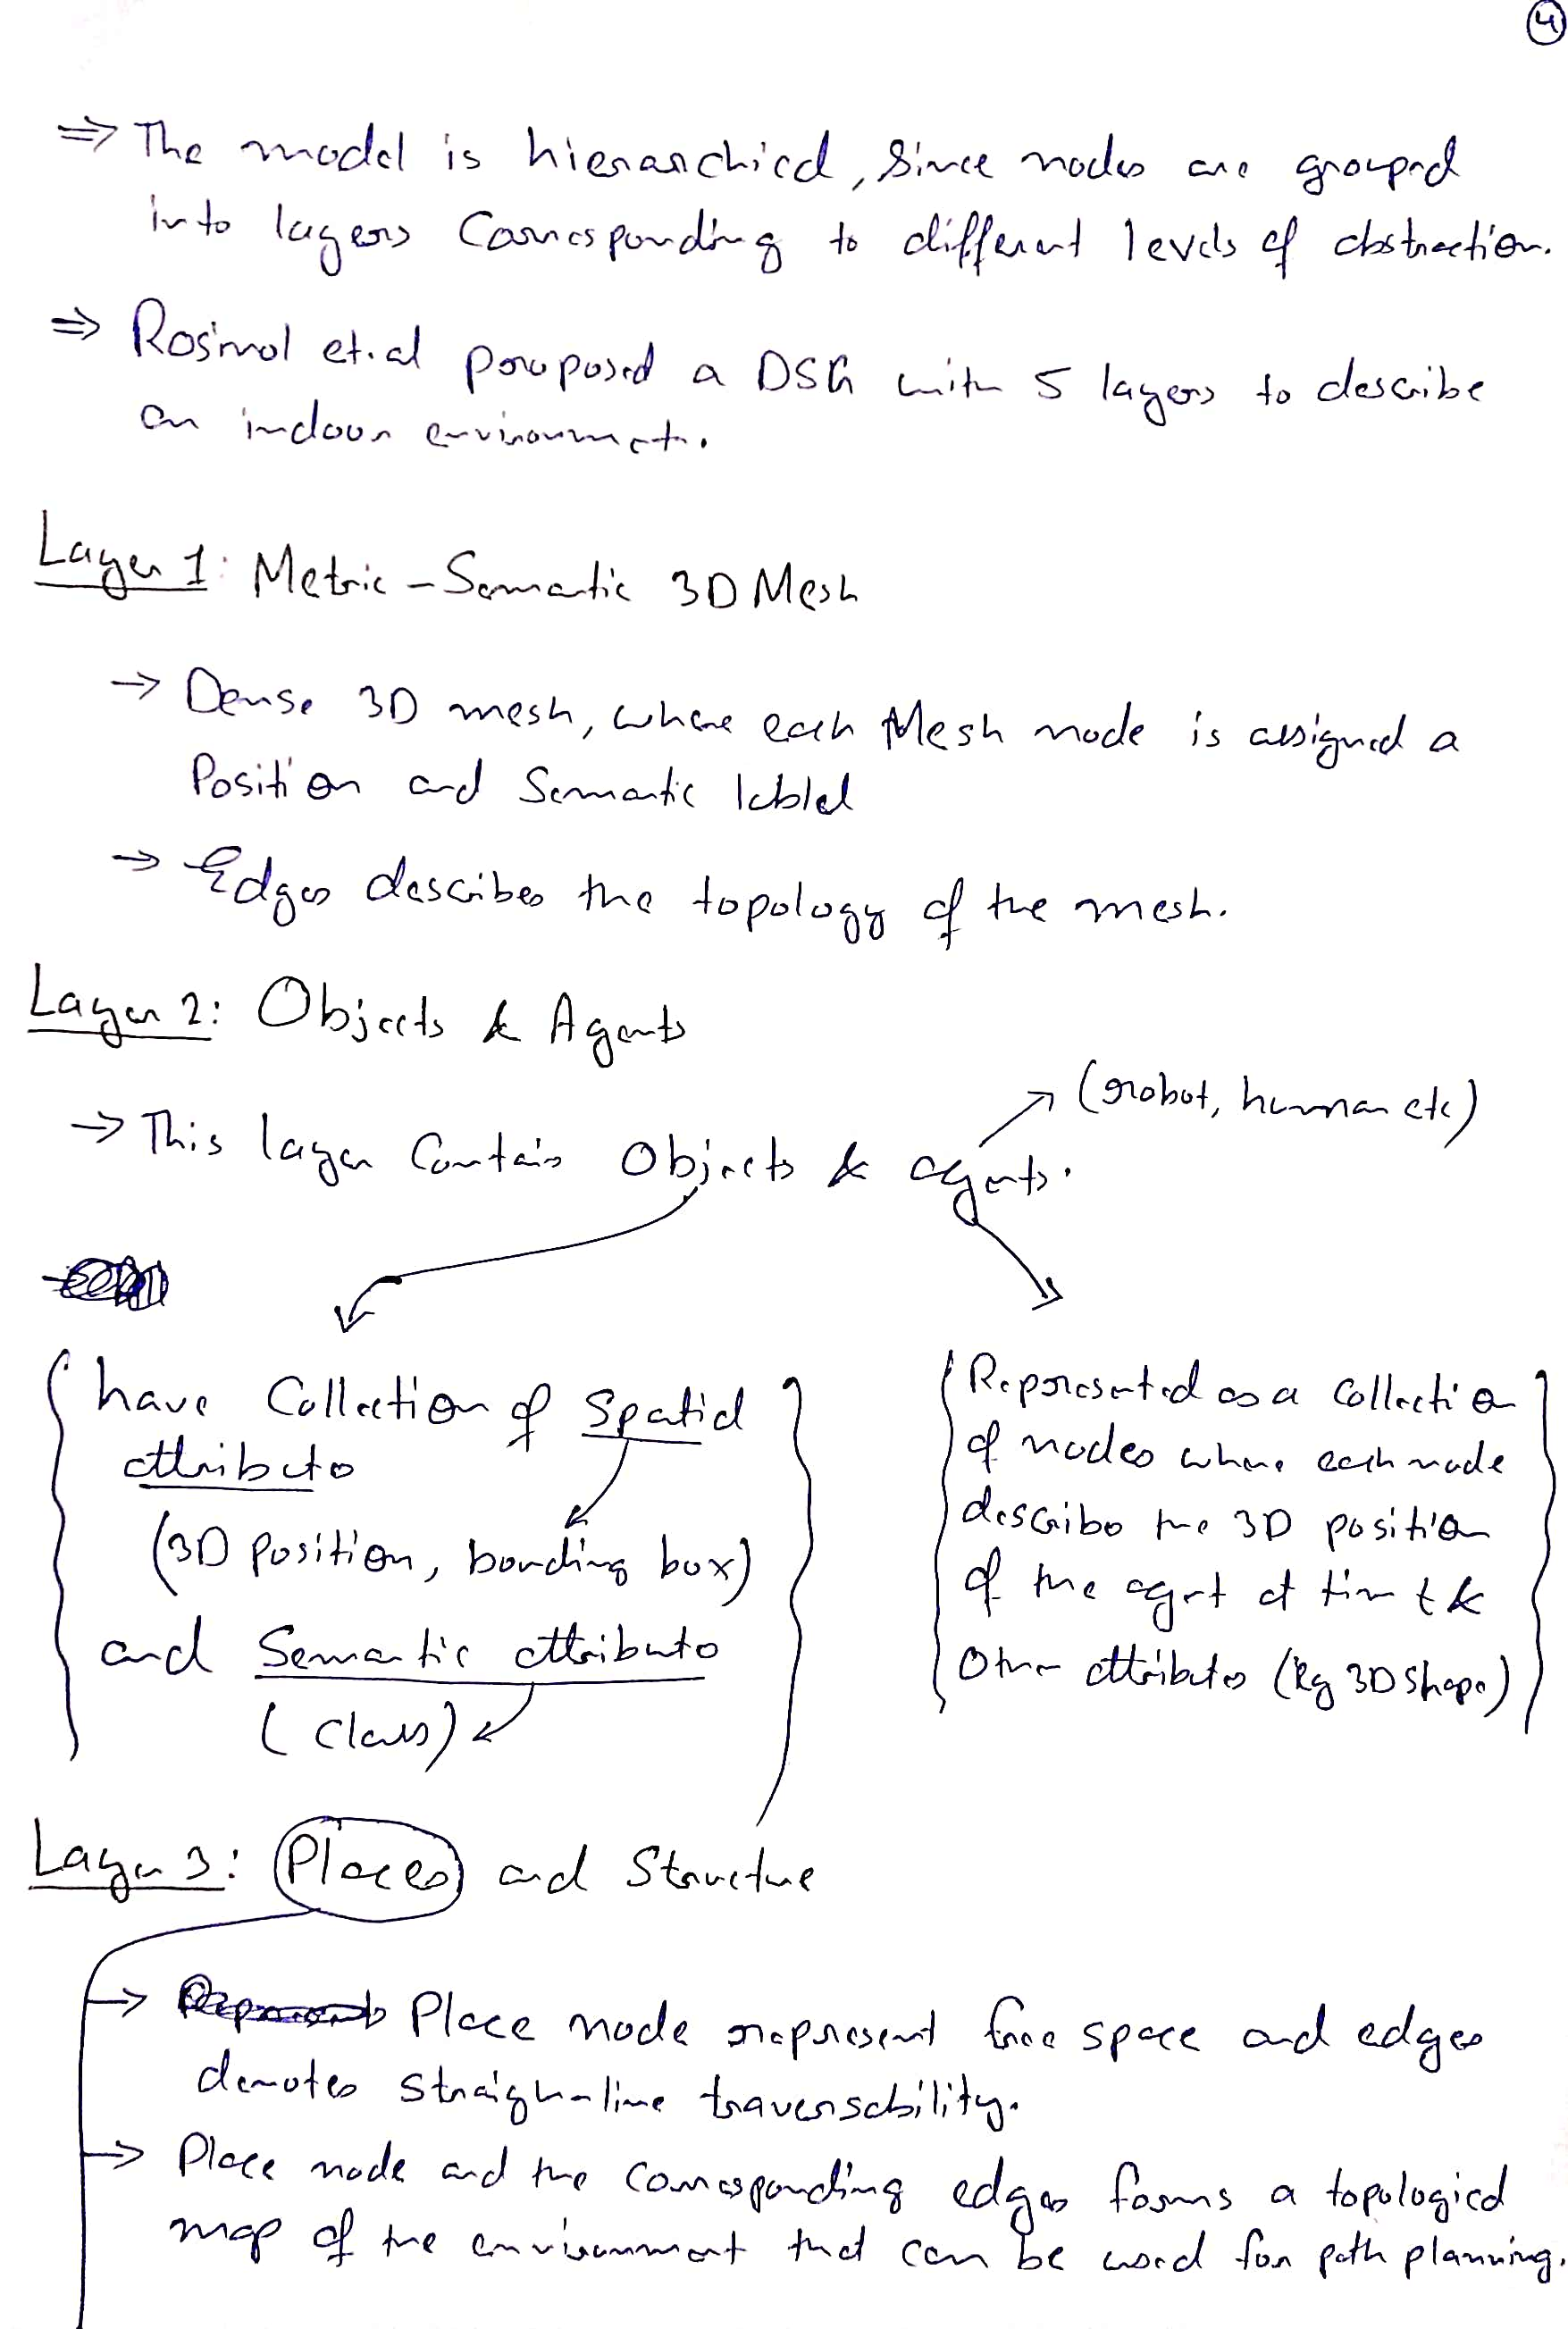 4
⇒ The model is hierarchical, since nodes are grouped
into layers corresponding to different levels of abstraction.
⇒ Rosinol et.al proposed a DSG with 5 layers to describe
an indoor environment.
Layer 1: Metric-Semantic 3D Mesh
→ Dense 3D mesh, where each Mesh node is assigned a
Position and Semantic lablel
→ Edges describes the topology of the mesh.
Layer 2: Objects & Agents
(robot, human etc)
→ This layer Contains Objects & agents.
have Collection of Spatial
attributes
(3D Position, bonding box)
and Semantic attributes
(Class)
Represented as a Collection
of nodes where each node
describes the 3D position
of the agent at time t &
Other attributes (Eg 3D Shape)
Layer 3: Places and Structure
→ Place node represent free space and edges
denotes straigh-line traversability.
→ Place node and the corresponding edges forms a topological
map of the environment that can be used for path planning.